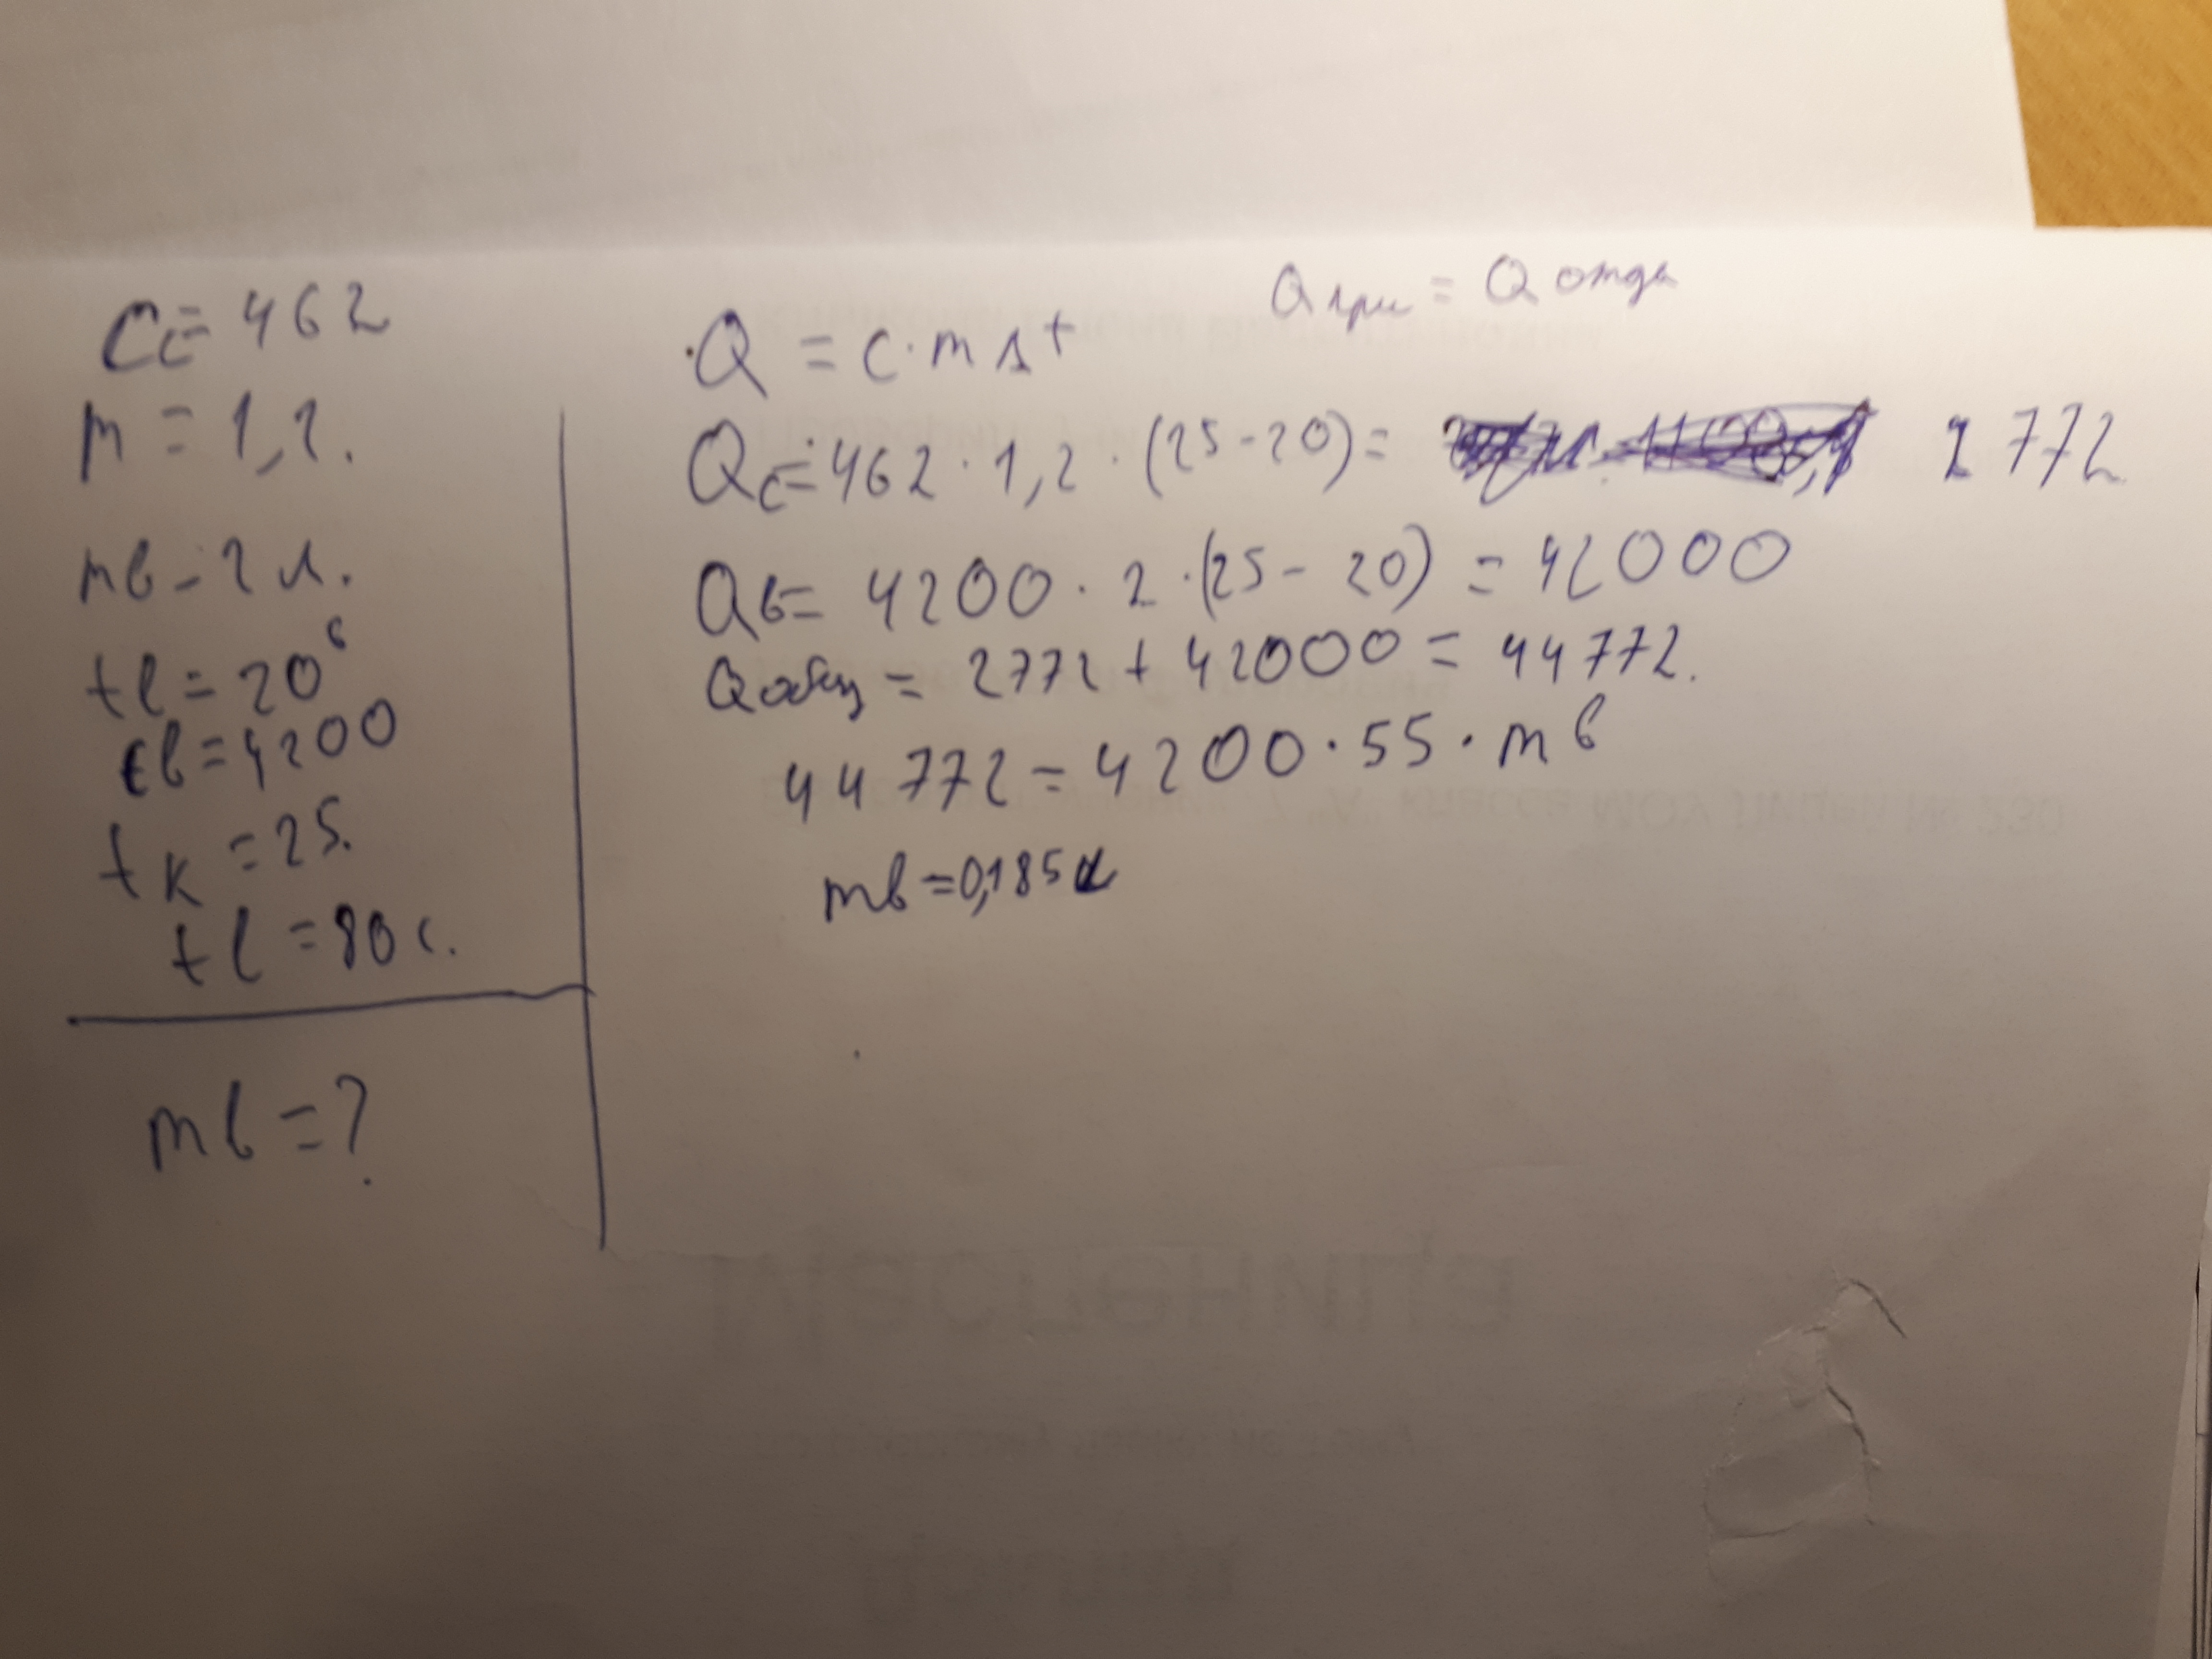 Cc = 462
m = 1,2.
mв - 2 л.
tв = 20°
cв = 4200
tк = 25.
tв = 80 с.
mв = ?
Qпри = Qотда
Q = c · m Δt
Qc = 462 · 1,2 · (25 - 20) = 2772
Qв = 4200 · 2 · (25 - 20) = 42000
Qобщ = 2772 + 42000 = 44772.
44772 = 4200 · 55 · mв
mв = 0,185
Масленица